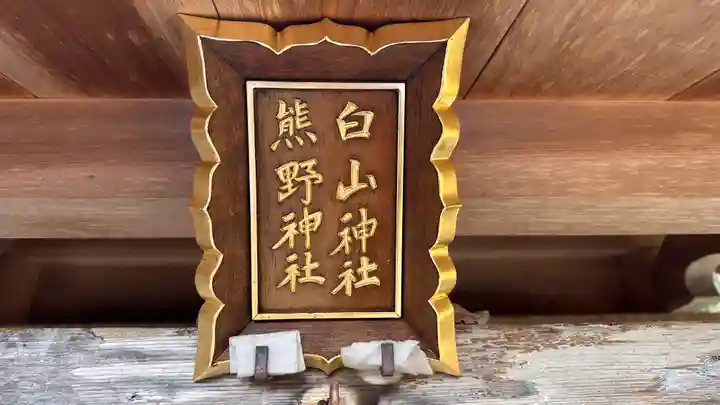 白山神社
熊野神社